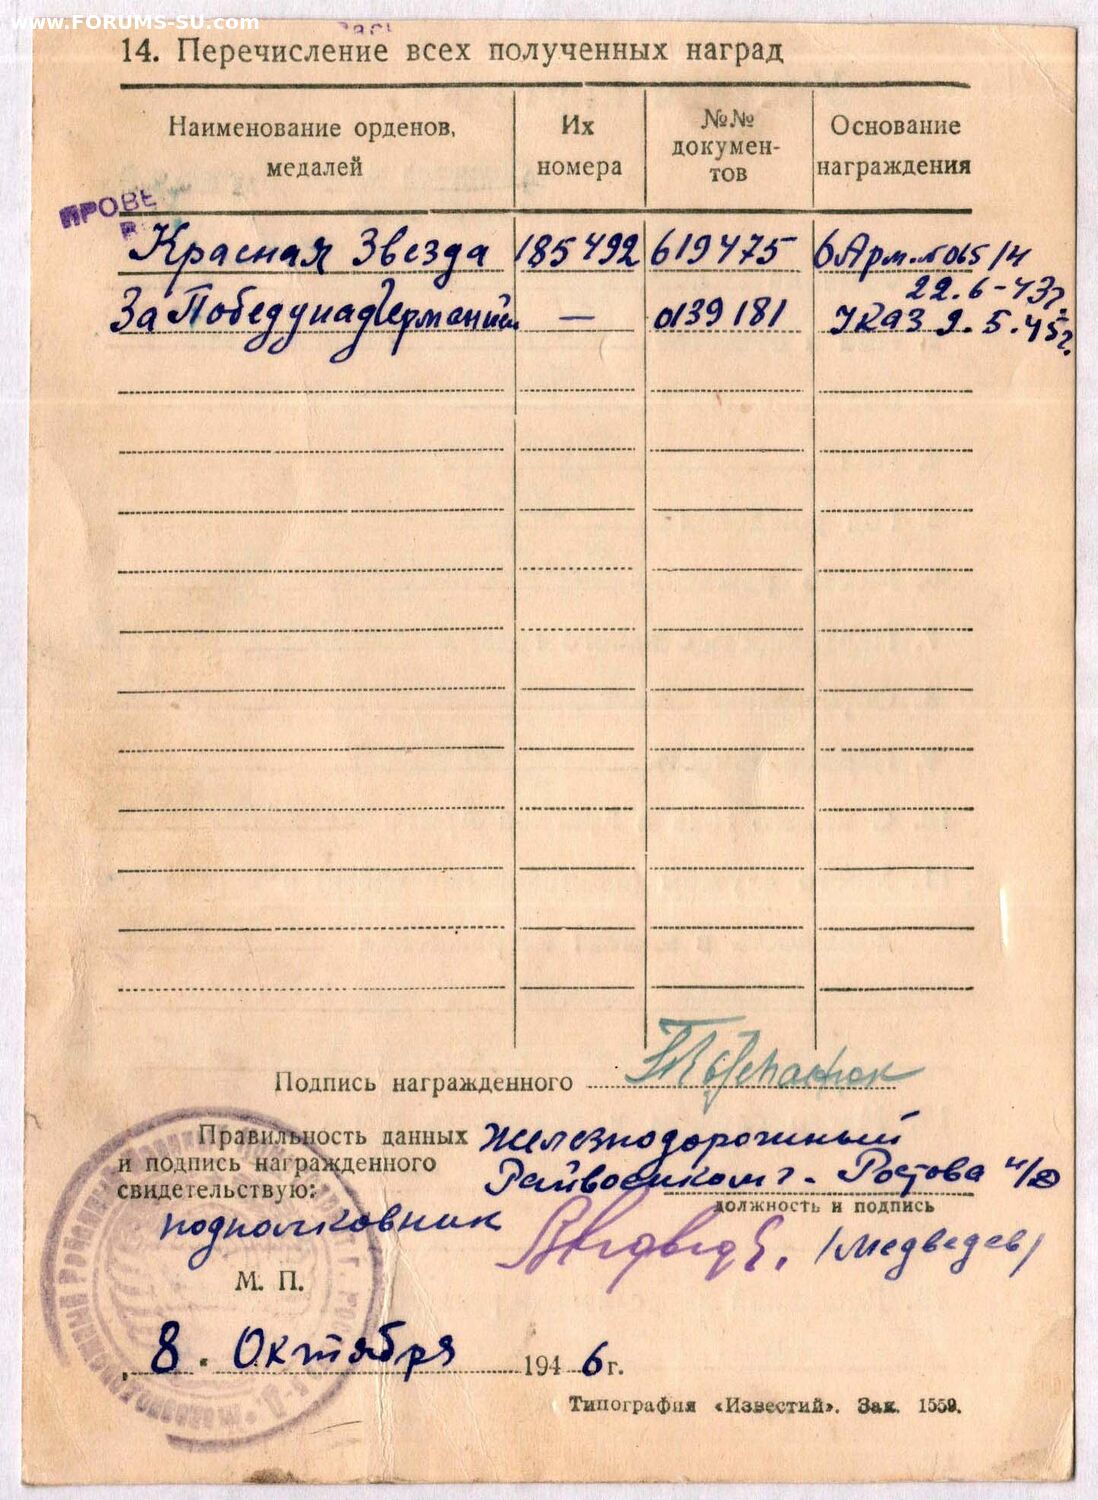 www.FORUMS-SU.com
14. Перечисление всех полученных наград
Наименование орденов, медалей
Их номера
№№ докумен-
тов
Основание награждения
ПРОВЕ
Красная Звезда 185492 619475 6 Арм. №065/н
22.6-43г.
За Победу над Германией — 0139181 Указ 9.5.45г.
Подпись награжденного
Правильность данных
и подпись награжденного
свидетельствую:
Железнодорожный
Райвоенком г. Ростова н/Д
должность и подпись
подполковник
/Медведев/
М. П.
8. Октября 1946 г.
Типография «Известий». Зак. 1559.